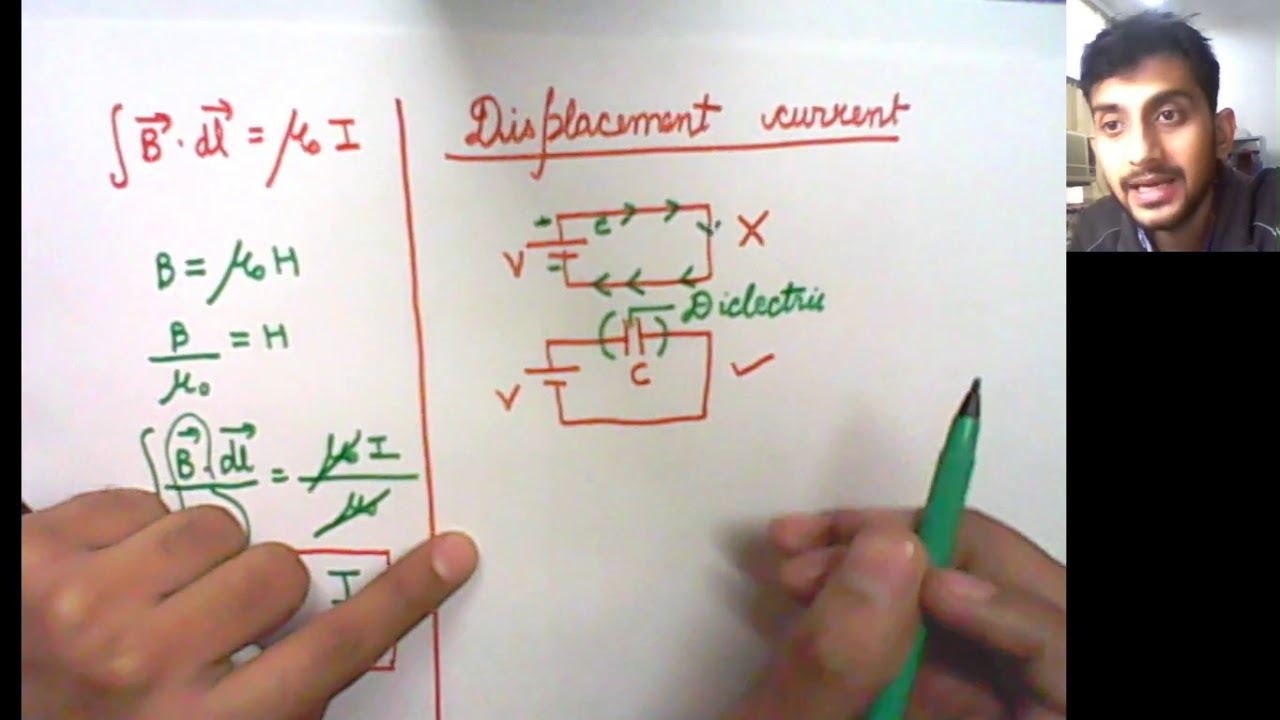 ∫ B⃗ · dl⃗ = μ₀ I
B = μ₀ H
B / μ₀ = H
∫ B⃗ · dl⃗ = μ₀ I / μ₀
I
Displacement current
+ e X
V
-
Dielectric
( )
C ✓
V